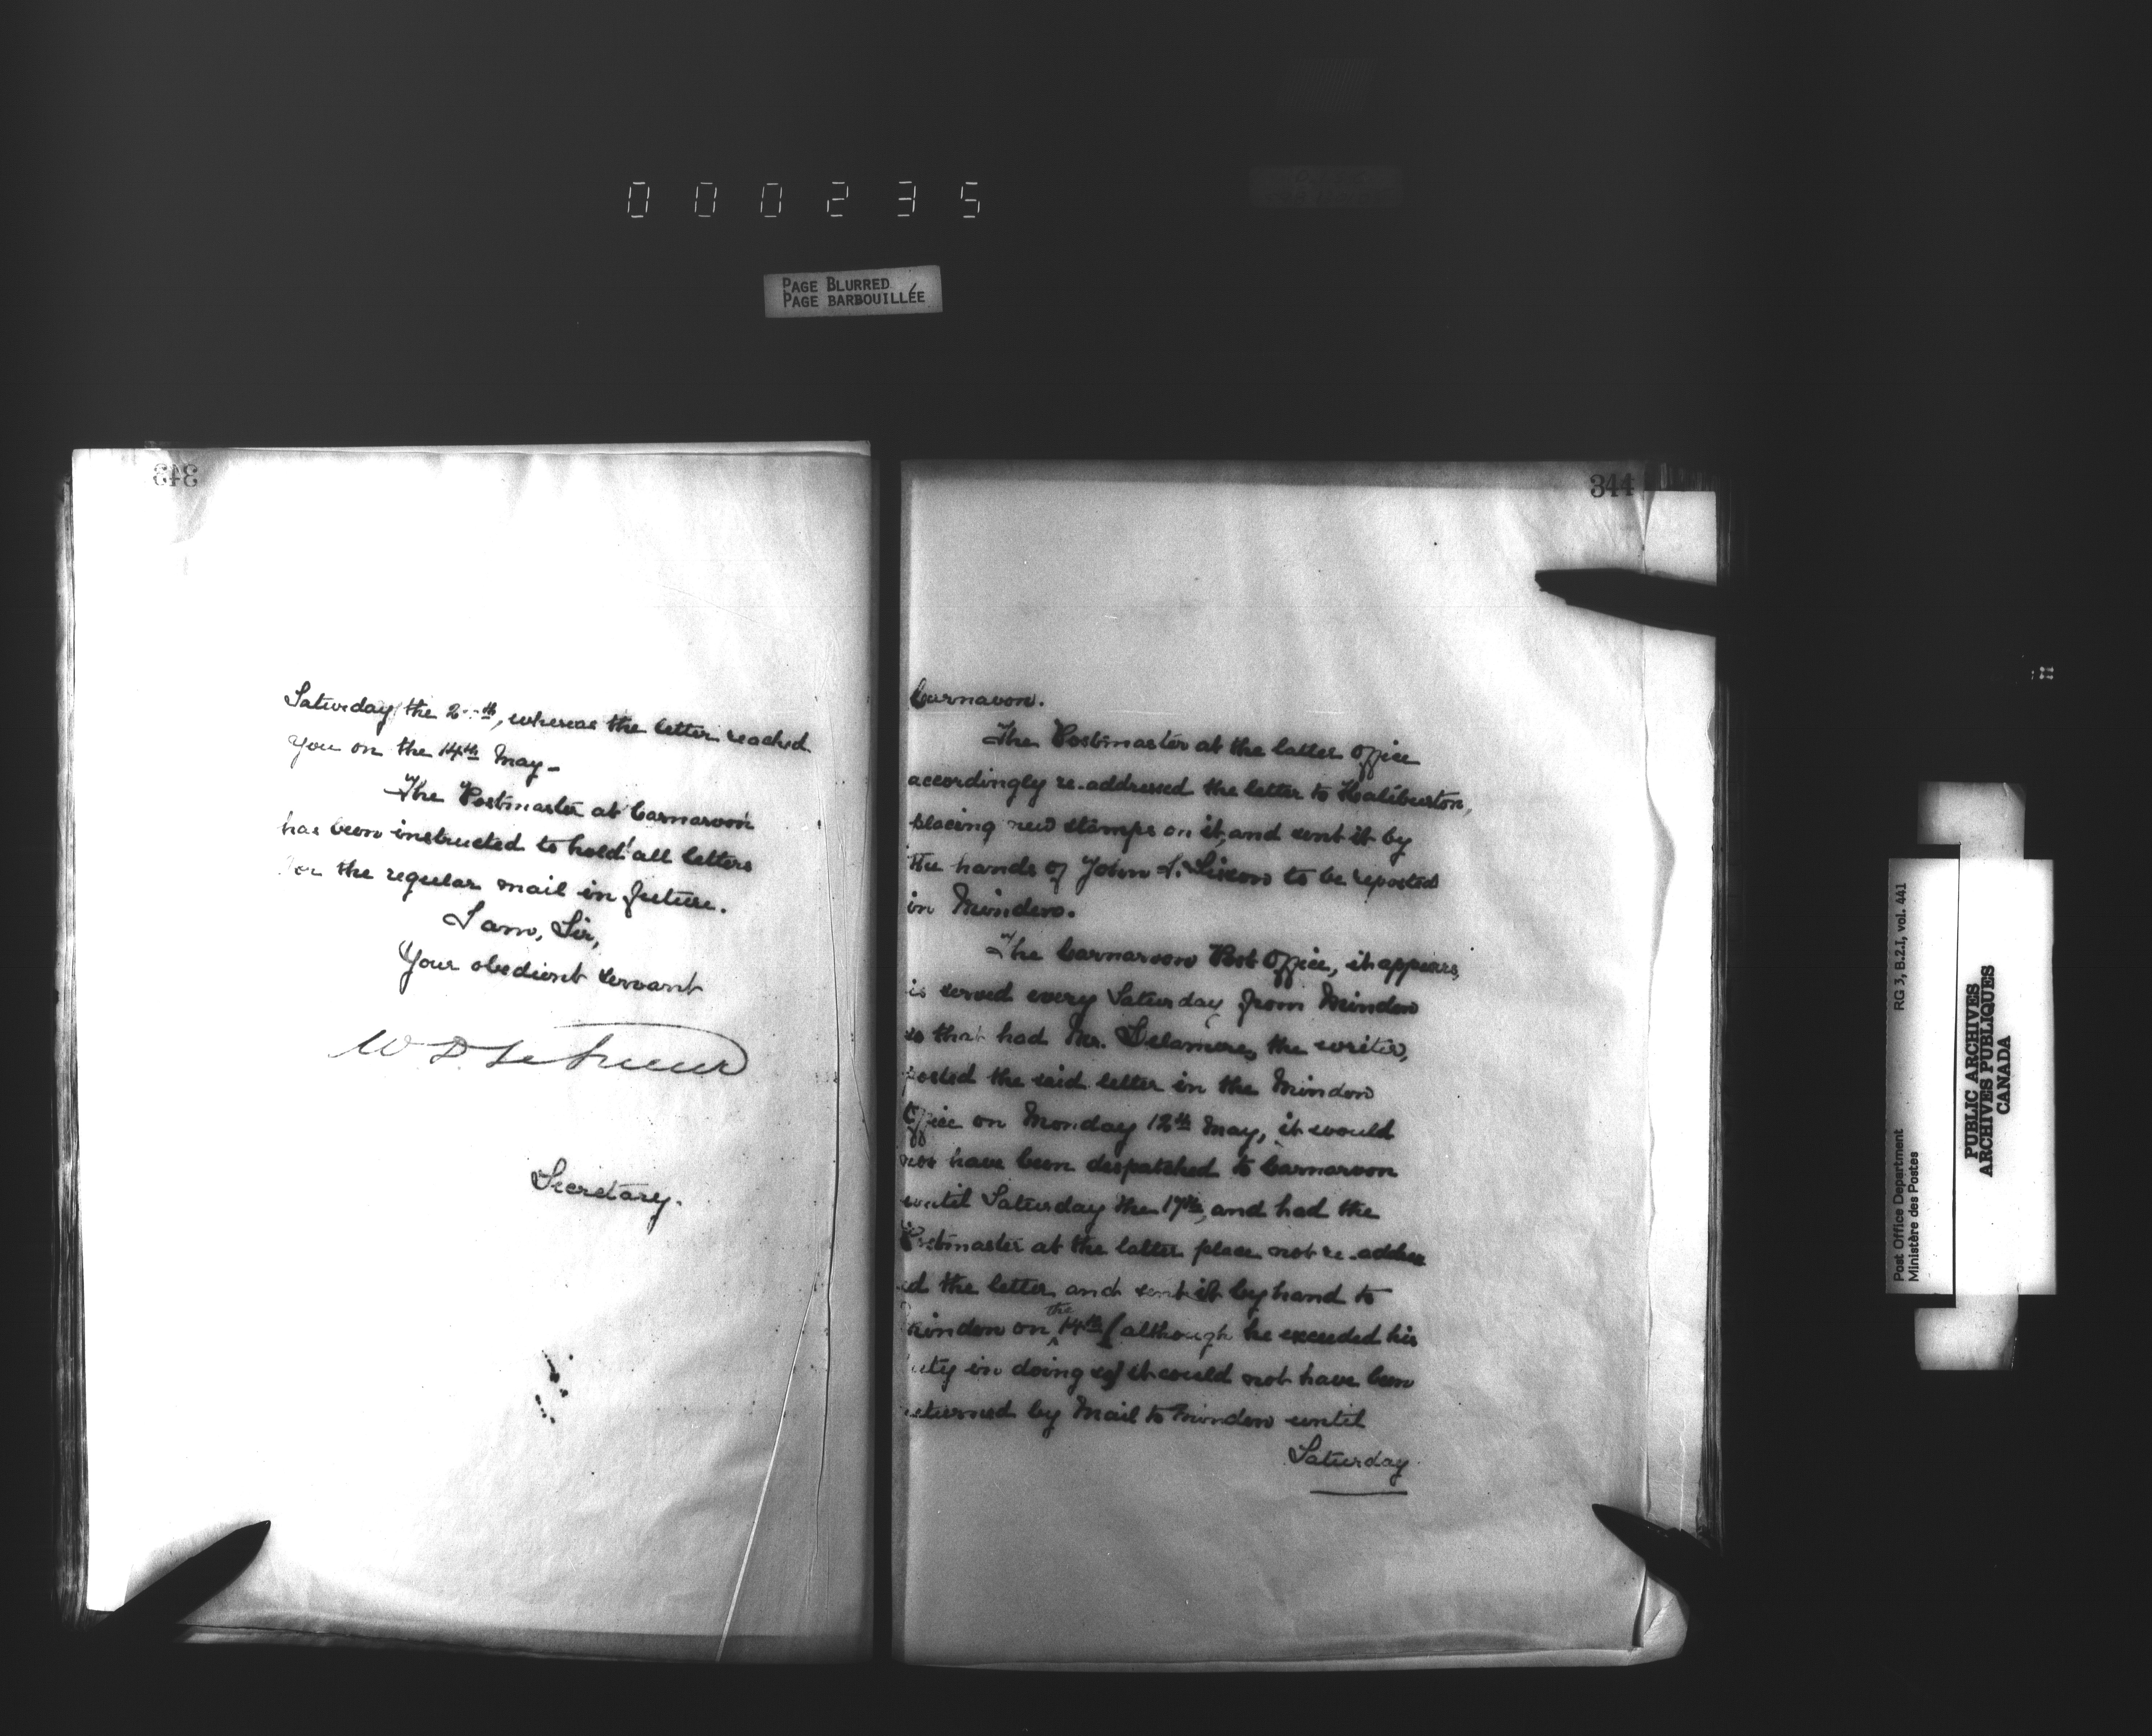 000235
PAGE BLURRED
PAGE BARBOUILLÉE
343
Saturday the 2 th, whereas the letter reached
you on the 14th May-
The Postmaster at Carnarvon
has been instructed to hold all letters
for the regular mail in future.
I am, Sir,
Your obedient servant
W. D. LeSueur
Secretary.
344
Carnavon.
The Postmaster at the latter office
accordingly re-addressed the letter to Haliburton,
placing new stamps on it, and sent it by
the hands of John to be reposted
in Minden.
The Carnarvon Post Office, it appears,
is served every Saturday from Minden
so that had Mr. Delamere, the writer,
posted the said letter in the Minden
Office on Monday 12th May, it would
not have been despatched to Carnarvon
until Saturday the 17th, and had the
Postmaster at the latter place not re-address
ed the letter and sent it by hand to
Minden on the 14th (although he exceeded his
duty in doing so) it could not have been
returned by Mail to Minden until
Saturday
RG 3, B.2.I, vol. 441
Post Office Department
Ministère des Postes
PUBLIC ARCHIVES
ARCHIVES PUBLIQUES
CANADA